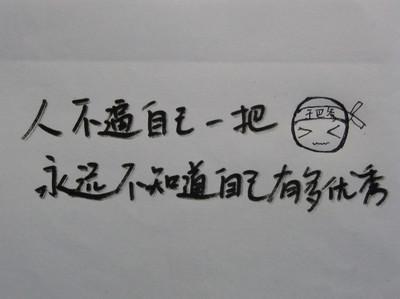 人不逼自己一把
干巴爹
永远不知道自己有多优秀